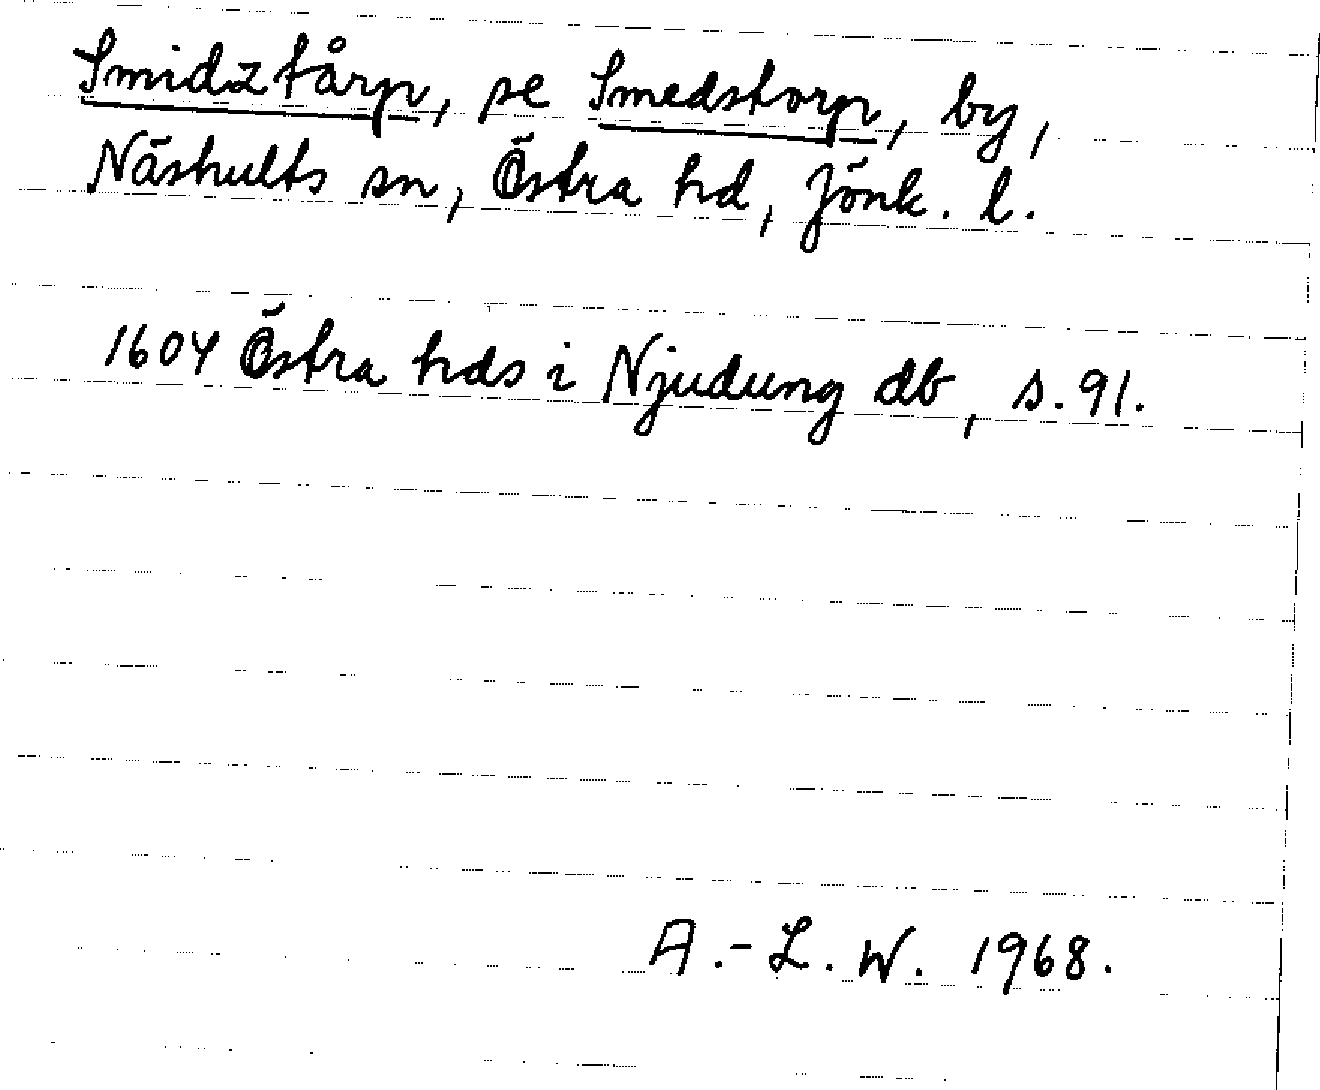 Smidztårp, se Smedstorp, by,
Näshults sn, Östra hd, Jönk. l.
1604 Östra hds i Njudung db, s. 91.
A.-L. W. 1968.